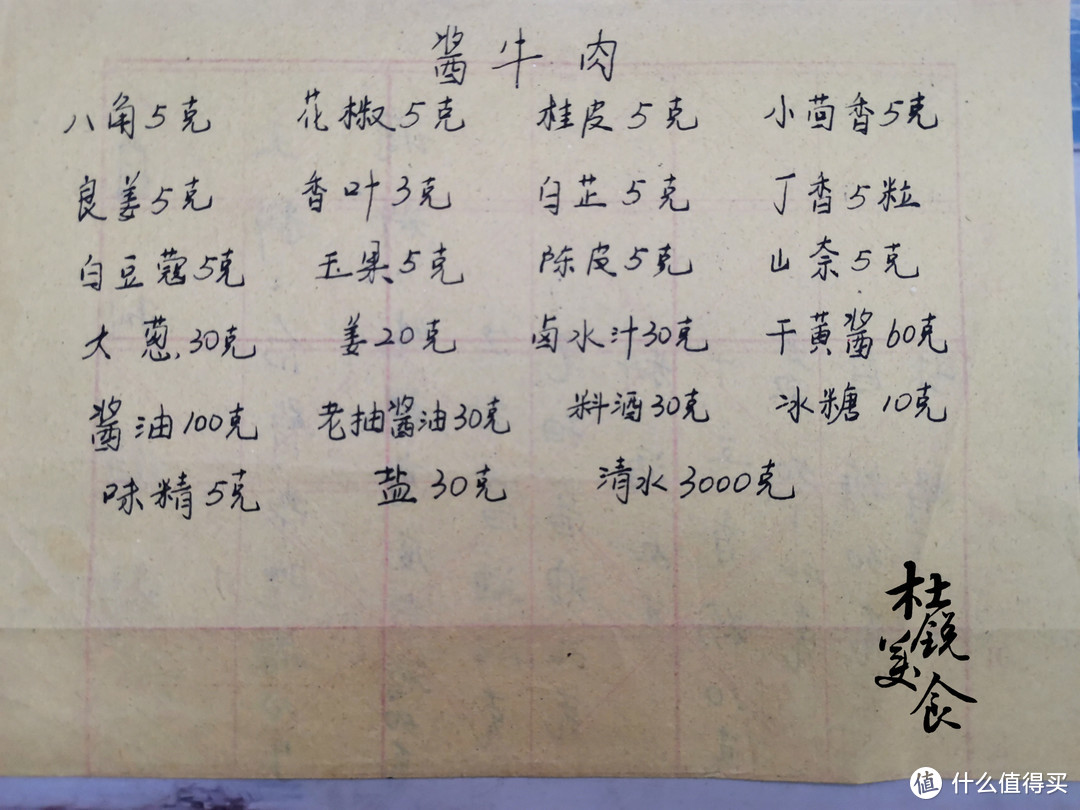 酱牛肉
八角5克 花椒5克 桂皮5克 小茴香5克
良姜5克 香叶3克 白芷5克 丁香5粒
白豆蔻5克 玉果5克 陈皮5克 山奈5克
大葱30克 姜20克 卤水汁30克 干黄酱60克
酱油100克 老抽酱油30克 料酒30克 冰糖10克
味精5克 盐30克 清水3000克
杜锐美食
值 什么值得买